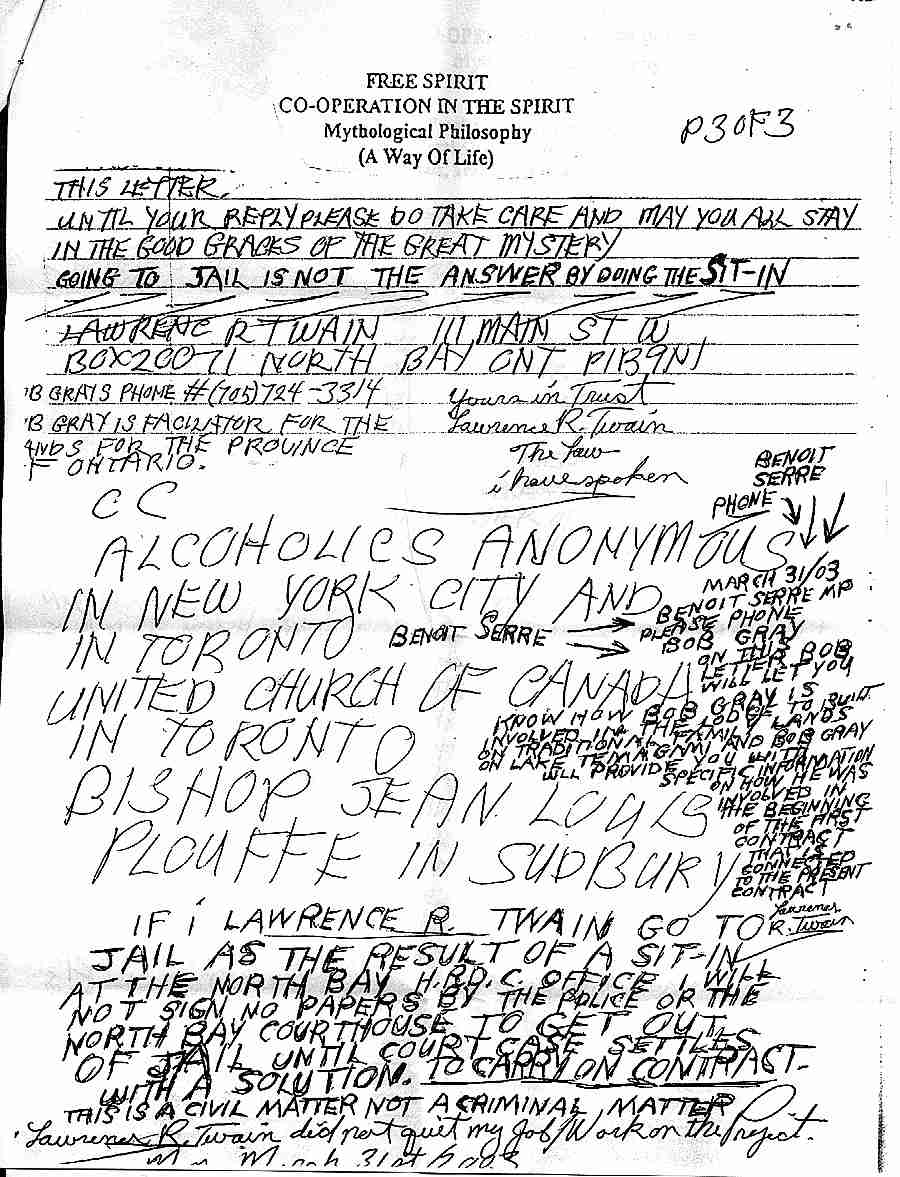 FREE SPIRIT
CO-OPERATION IN THE SPIRIT
Mythological Philosophy
(A Way Of Life)
P3OF3
THIS LETTER.
UNTIL YOUR REPLY PLEASE DO TAKE CARE AND MAY YOU ALL STAY
IN THE GOOD GRACES OF THE GREAT MYSTERY
GOING TO JAIL IS NOT THE ANSWER BY DOING THE SIT-IN
LAWRENC R TWAIN 111 MAIN ST W
BOX 20071 NORTH BAY ONT P1B9N1
'B GRAYS PHONE #(705)724-3314
'B GRAY IS FACILITATOR FOR THE
ANDS FOR THE PROVINCE
F ONTARIO.
Yours in Trust
Lawrence R. Twain
The Law
i have spoken
BENOIT
SERRE
PHONE
CC
ALCOHOLICS ANONYMOUS
IN NEW YORK CITY AND
IN TORONTO
UNITED CHURCH OF CANADA
IN TORONTO
BISHOP JEAN LOUIS
PLOUFFE IN SUDBURY
BENOIT SERRE
MARCH 31/03
BENOIT SERRE MP
PLEASE PHONE
BOB GRAY
ON THIS BOB
LETTER LET YOU
WILL
KNOW HOW BOB GRAY IS
INVOLVED IN THE LODGE TO BUILT
ON TRADITIONAL FAMILY LANDS
ON LAKE TEMAGAMI AND BOB GRAY
WILL PROVIDE YOU WITH
SPECIFIC INFORMATION
ON HOW HE WAS
INVOLVED IN
THE BEGINNING
OF THE FIRST
CONTRACT
THAT IS
CONNECTED
TO THE PRESENT
CONTRACT
Lawrence
R. Twain
IF i LAWRENCE R. TWAIN GO TO
JAIL AS THE RESULT OF A SIT-IN
AT THE NORTH BAY H.R.D.C. OFFICE I WILL
NOT SIGN NO PAPERS BY THE POLICE OR THE
NORTH BAY COURTHOUSE TO GET OUT
OF JAIL UNTIL COURT CASE SETTLES
WITH A SOLUTION. TO CARRY ON CONTRACT.
THIS IS A CIVIL MATTER NOT A CRIMINAL MATTER
Lawrence R. Twain did not quit my Job/Work on the Project.
March 31st